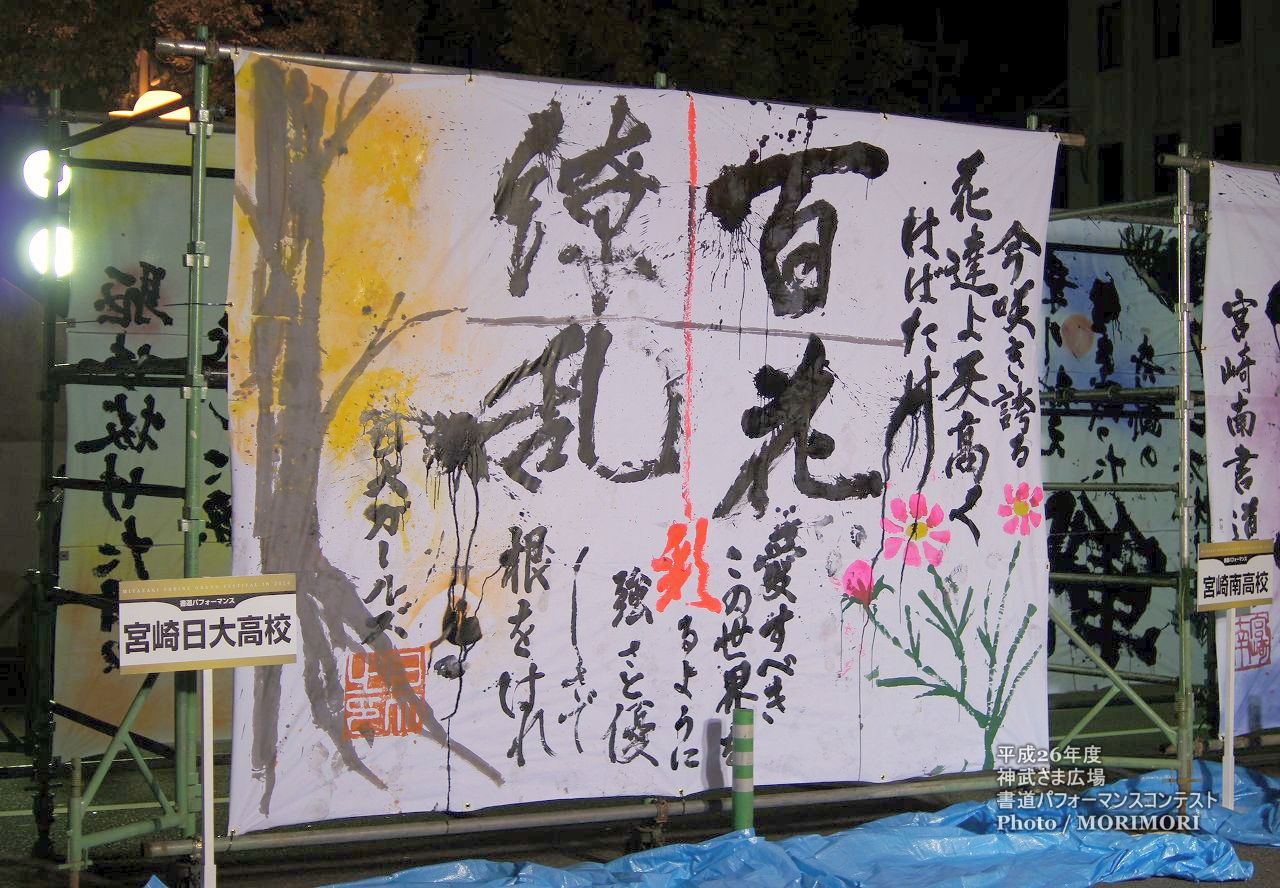 今咲き誇る
花達よ天高く
はばたけ
百花
繚乱
愛すべき
この世界を
彩るように
強さと優
しさで
根をはれ
日大ガールズ
MIYAZAKI SHRINE GRAND FESTIVAL IN 2014
書道パフォーマンス
宮崎日大高校
書道パフォーマンス
宮崎南高校
宮崎南書道
平成26年度
神武さま広場
書道パフォーマンスコンテスト
Photo / MORIMORI